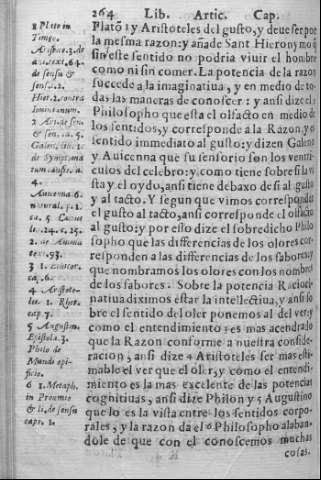 264 Lib. Artic. Cap.
Platō ɿ y Aristoteles del gusto, y deue ser por
la mesma razon: y añade Sant Hieronymo q̃
sin este sentido no podria viuir el hombre
como ni sin comer. La potencia de la razon
succede a la imaginatiua, y en medio de to-
das las maneras de conoscer: y ansi dize el
Philosopho que esta el olfacto en medio de
los sentidos, y corresponde a la Razon, y es
sentido immediato al gusto: y dizen Galeno
y Auicenna que su sensorio son los ventri-
culos del celebro: y como tiene sobre si la vi
sta y el oydo, ansi tiene debaxo de si al gusto
y al tacto. Y segun que vimos corresponder
el gusto al tacto, ansi corresponde el olfacto
al gusto: y por esso dize el sobredicho Philo
sopho que las differencias de los olores cor-
responden a las differencias de los sabores, y
que nombramos los olores con los nombres
de los sabores. Sobre la potencia Raciocī-
natiua diximos estar la intellectiua, y ansi so
bre el sentido del oler ponemos al del ver: y
como el entendimiento 3 es mas acendrado
que la Razon conforme a nuestra conside-
racion, ansi dize 4 Aristoteles ser mas esti-
mable el ver que el oler, y como el entendi-
miento es la mas excelente de las potencias
cognitiuas, ansi dize Philon y 5 Augustino
que lo es la vista entre los sentidos corpo-
rales, y la razon da el 6 Philosopho alaban-
dole de que con el conoscemos muchas
cosas.
1 Plato in
Timeo.
Aristote. 3. de
anī. text. 64.
de sensu &
sensi. c. 2.
Hier. 2. contra
Iouinianum.
2 Ari. de sen.
& sen. ca. 5.
Galen. lib. 1.
de Symptoma
tum causis. ca.
4.
Auicenna 6.
natural. p. 1.
ca. 5.
24. c. 15.
2. de Anima
tex. 93.
3 1. Ethicor.
cap. 6.
4 Aristote-
les. 1. Rhet.
cap. 7.
5 Augustin.
Epistola. 3.
Philo de
Mundi opi-
ficio.
6 1. Metaph.
in Proemio
& li. de sensu
cap. 1.